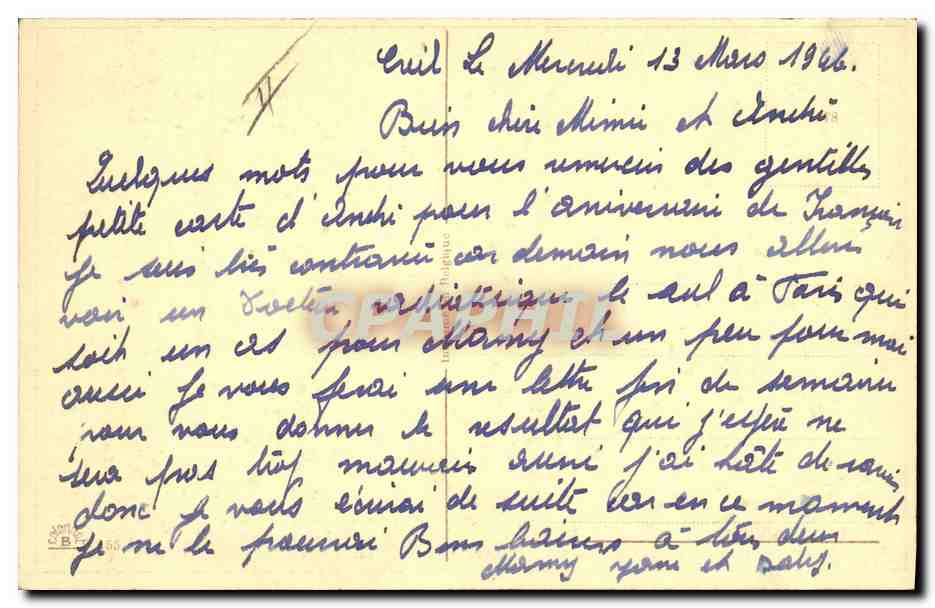 Creil Le Mercredi 13 Mars 1946.
Bien chère Mimie et André
Quelques mots pour vous remercier des gentilles
petite carte d'André pour l'aniversaire de François
Je suis très contrarié car demain nous allons
voir un Docteur le seul à Paris qui
soit un cas pour Mamy et un peu pour moi
aussi Je vous ferai une lettre fin de semaine
pour vous donner le resultat qui j'espère ne
sera pas trop mauvais aussi j'ai hâte de savoir
donc je vous écrirai de suite car en ce moment
Je ne le pourrai Bons baisers à tous deux
Mamy et
CPAPHIL
Belgique
B